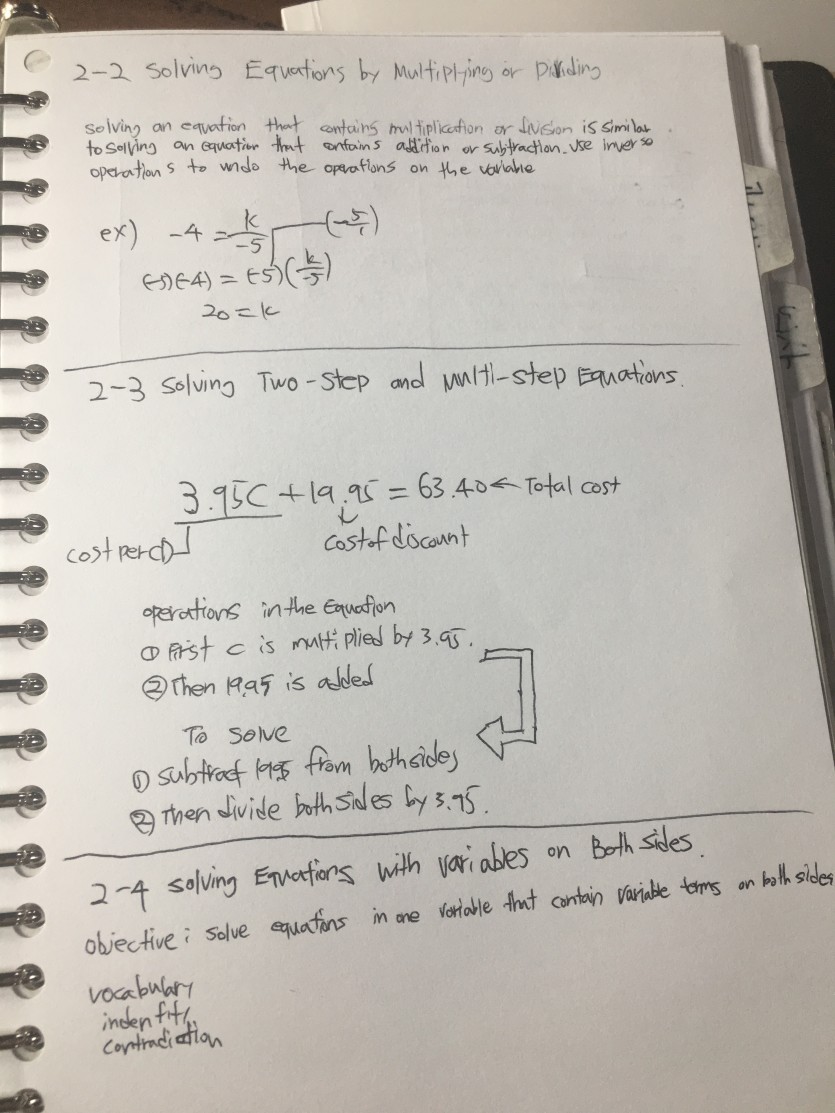 2-2 Solving Equations by Multiplying or Dividing
solving an equation that contains multiplication or division is similar
to solving an equation that contains addition or subtraction. Use inverse
operations to undo the operations on the variable
ex) -4 = k/-5 (-5/1)
(-5)(-4) = (-5)(k/-5)
20 = k
2-3 Solving Two-Step and Multi-step Equations.
3.95C + 19.95 = 63.40 ← Total cost
cost per CD
cost of discount
operations in the Equation
① First c is multiplied by 3.95.
② Then 19.95 is added
To solve
① subtract 19.95 from both sides
② Then divide both sides by 3.95.
2-4 solving Equations with variables on Both sides.
objective: solve equations in one variable that contain variable terms on both sides
vocabulary
indentity
contradiction